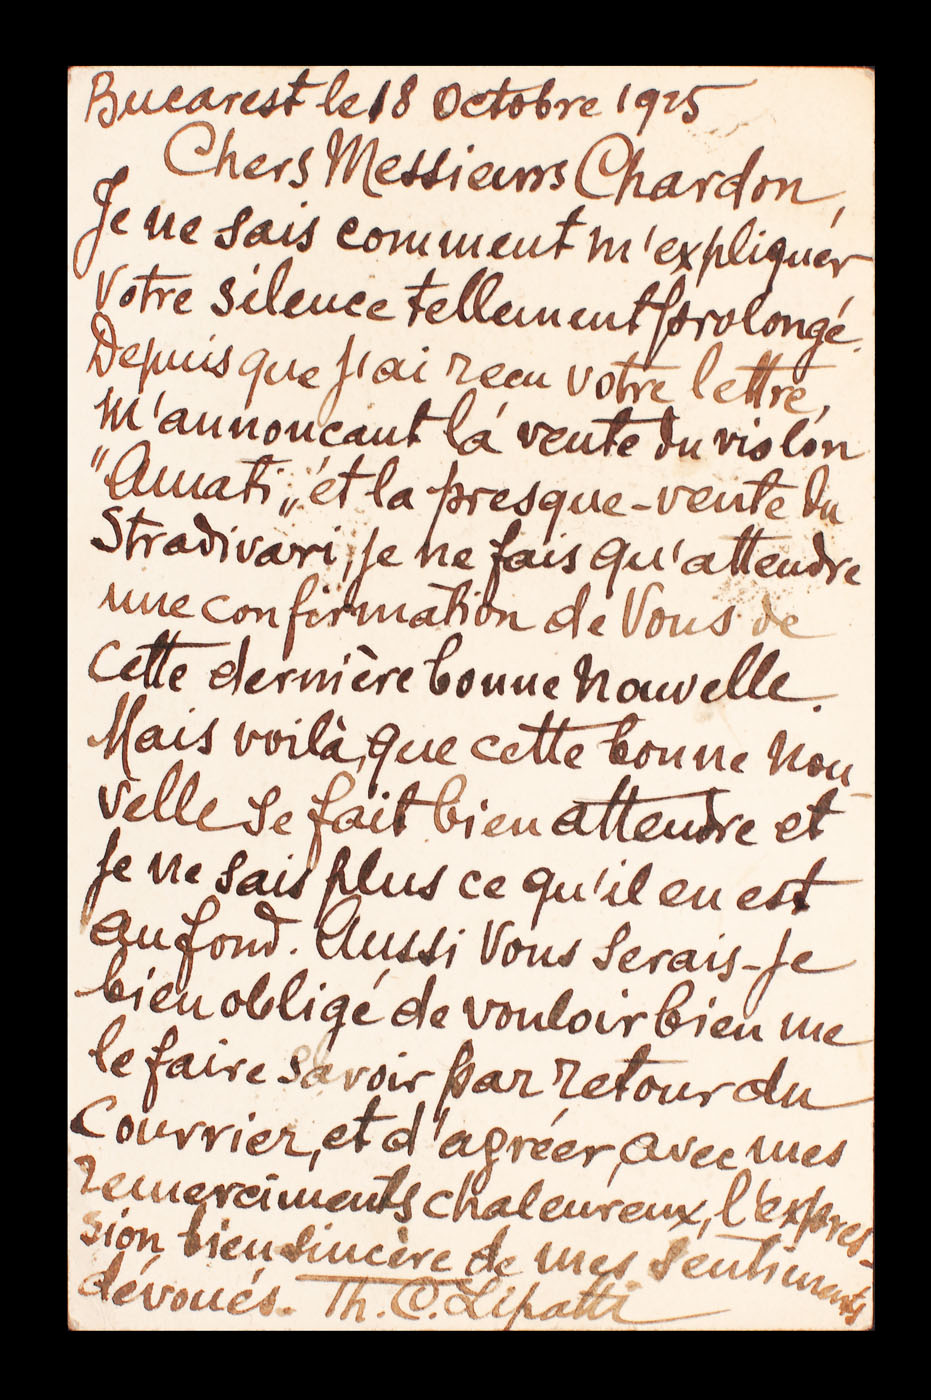 Bucarest le 18 Octobre 1925
Chers Messieurs Chardon,
Je ne sais comment m'expliquer
Votre silence tellement prolongé.
Depuis que j'ai recu votre lettre,
m'annoncant la vente du violon
"Amati„ et la presque-vente du
Stradivari, je ne fais qu'attendre
une confirmation de Vous de
cette dernière bonne nouvelle.
Mais voilà, que cette bonne nou
velle se fait bien attendre et
je ne sais plus ce qu'il en est
au fond. Aussi Vous serais-je
bien obligé de vouloir bien me
le faire savoir par retour du
Courrier, et d'agréer, avec mes
remerciments chaleureux, l'expres-
sion bien sincère de mes sentiments
dévoués. Th. C. Lipatti